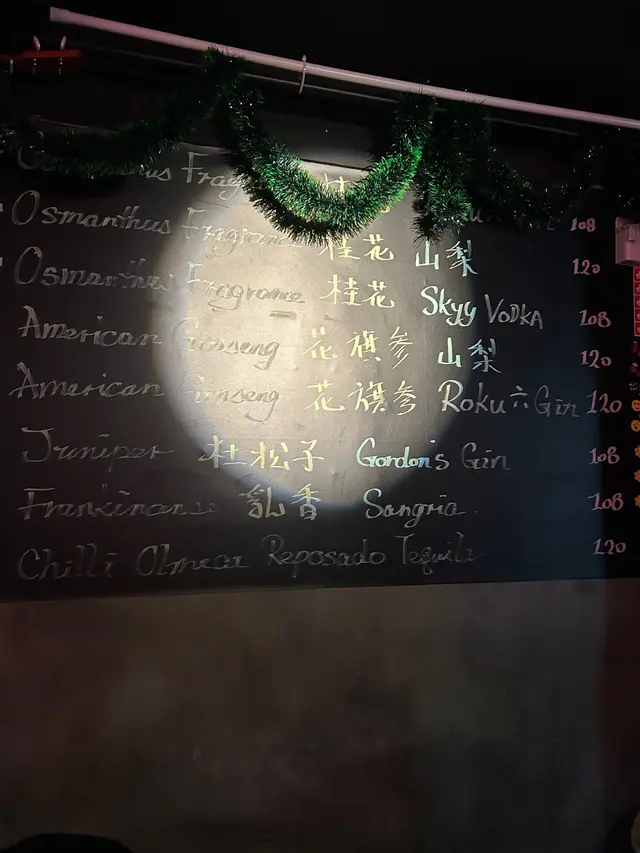 Fragr 桂 108
Osmanthus Fragrance 桂花 山梨 120
Osmanthus Fragrance 桂花 Skyy VODKA 108
American Ginseng 花旗参 山梨 120
American Ginseng 花旗参 Roku 六 Gin 120
Juniper 杜松子 Gordon's Gin 108
Frankinanse 乳香 Sangria. 108
Chilli Olmeca Reposado Tequila 120